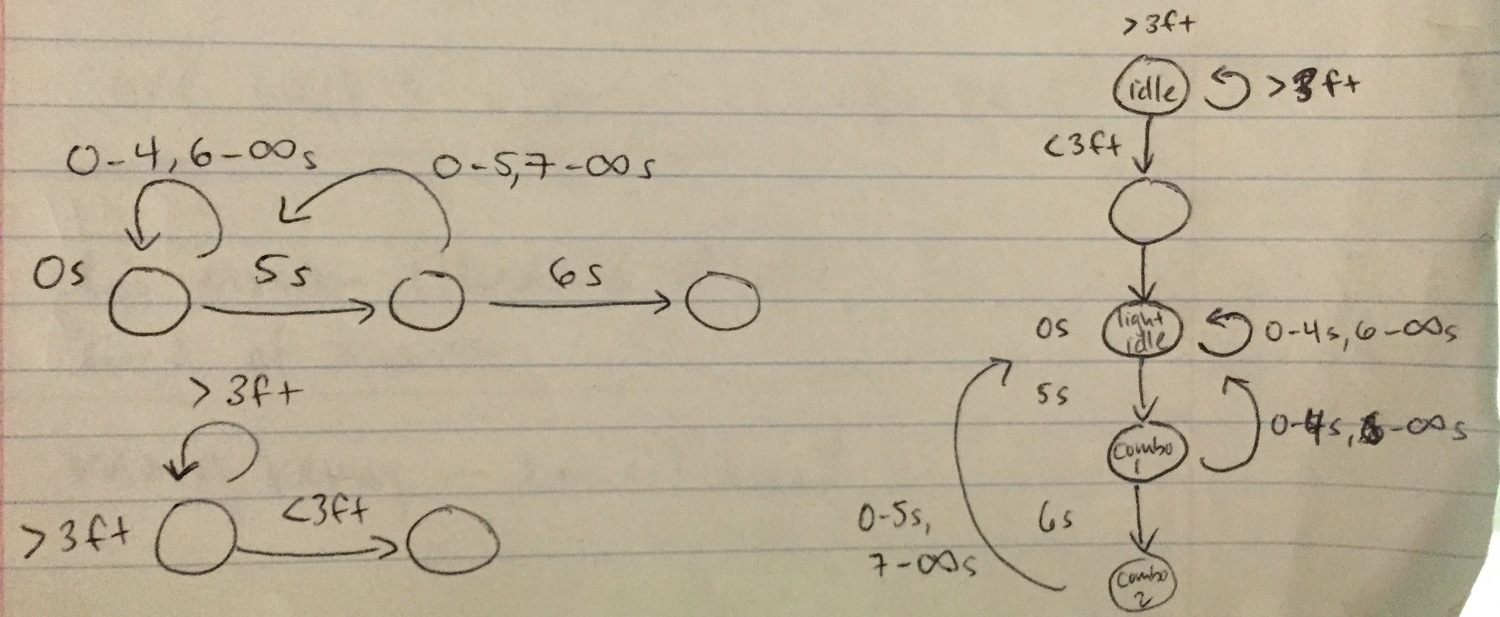 0-4,6-∞s
0-5,7-∞s
0s
5s
6s
>3ft
>3ft
<3ft
>3ft
idle
>3ft
<3ft
0s
light
idle
0-4s,6-∞s
5s
combo
1
0-4s,6-∞s
0-5s,
7-∞s
6s
combo
2